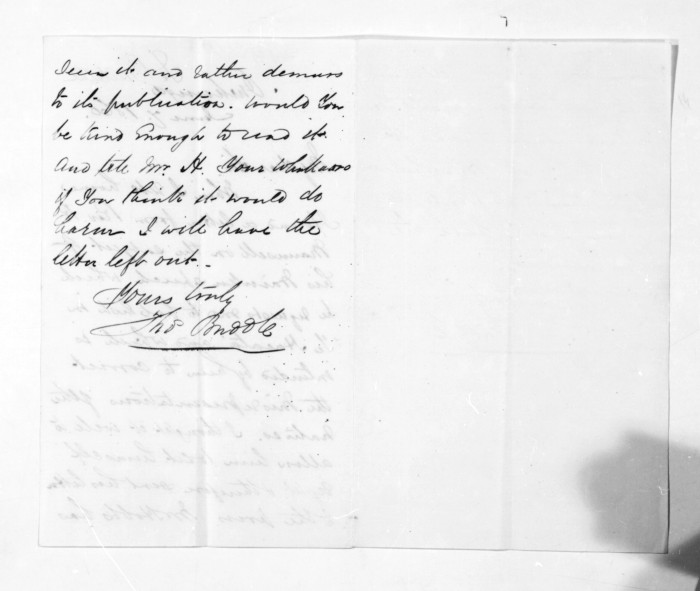 seen it and rather demurs
to its publication. Would You
be kind enough to read it
and tell Mr. H. Your
if You think it would do
harm I will have the
letter left out.
Yours truly
Thos Buddle